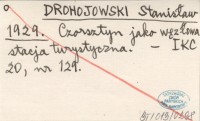 DROHOJOWSKI Stanisław
1929. Czorsztyn jako węzłowa
stacja turystyczna. – IKC
20, nr 129.